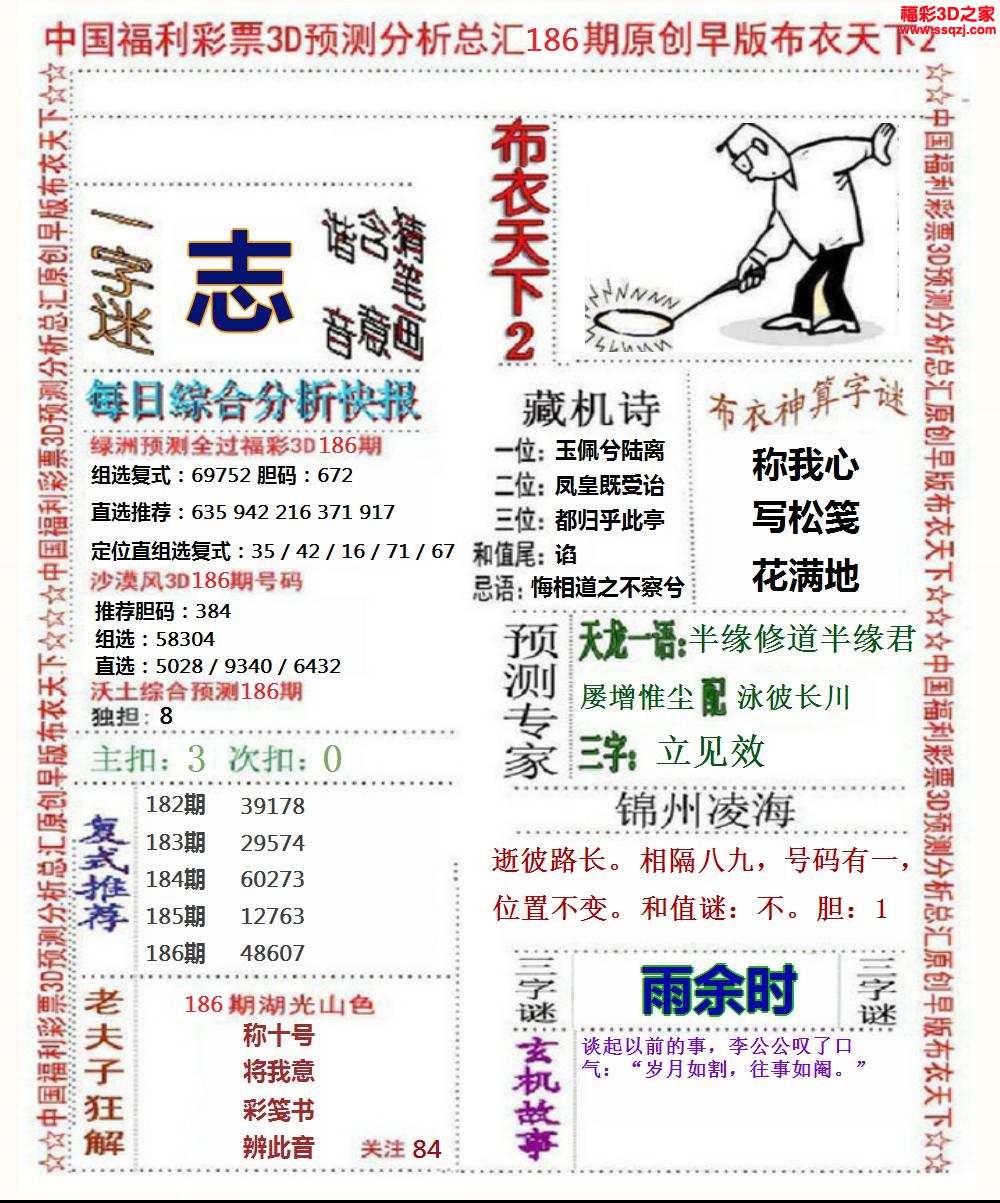 福彩3D之家
www.ssqzj.com
中国福利彩票3D预测分析总汇186期原创早版布衣天下2
☆☆中国福利彩票3D预测分析总汇原创早版布衣天下☆☆☆中国福利彩票3D预测分析总汇原创早版布衣天下☆☆
一字迷
志
拆字画
含意
谐音
布衣天下2
每日综合分析快报
绿洲预测全过福彩3D186期
组选复式：69752 胆码：672
直选推荐：635 942 216 371 917
定位直组选复式：35 / 42 / 16 / 71 / 67
沙漠风3D186期号码
推荐胆码：384
组选：58304
直选：5028 / 9340 / 6432
沃土综合预测186期
独担：8
主扣：3 次扣：0
复式推荐
182期 39178
183期 29574
184期 60273
185期 12763
186期 48607
老夫子狂解
186期湖光山色
称十号
将我意
彩笺书
辨此音
关注 84
藏机诗
一位：玉佩兮陆离
二位：凤皇既受诒
三位：都归乎此亭
和值尾：谄
忌语：悔相道之不察兮
布衣神算字谜
称我心
写松笺
花满地
预测专家
天龙一语:半缘修道半缘君
屡增惟尘配泳彼长川
三字：立见效
锦州凌海
逝彼路长。相隔八九，号码有一，
位置不变。和值谜：不。胆：1
三字谜
雨余时
三字谜
玄机故事
谈起以前的事，李公公叹了口
气：“岁月如割，往事如阉。”
☆☆中国福利彩票3D预测分析总汇原创早版布衣天下☆☆☆中国福利彩票3D预测分析总汇原创早版布衣天下☆☆